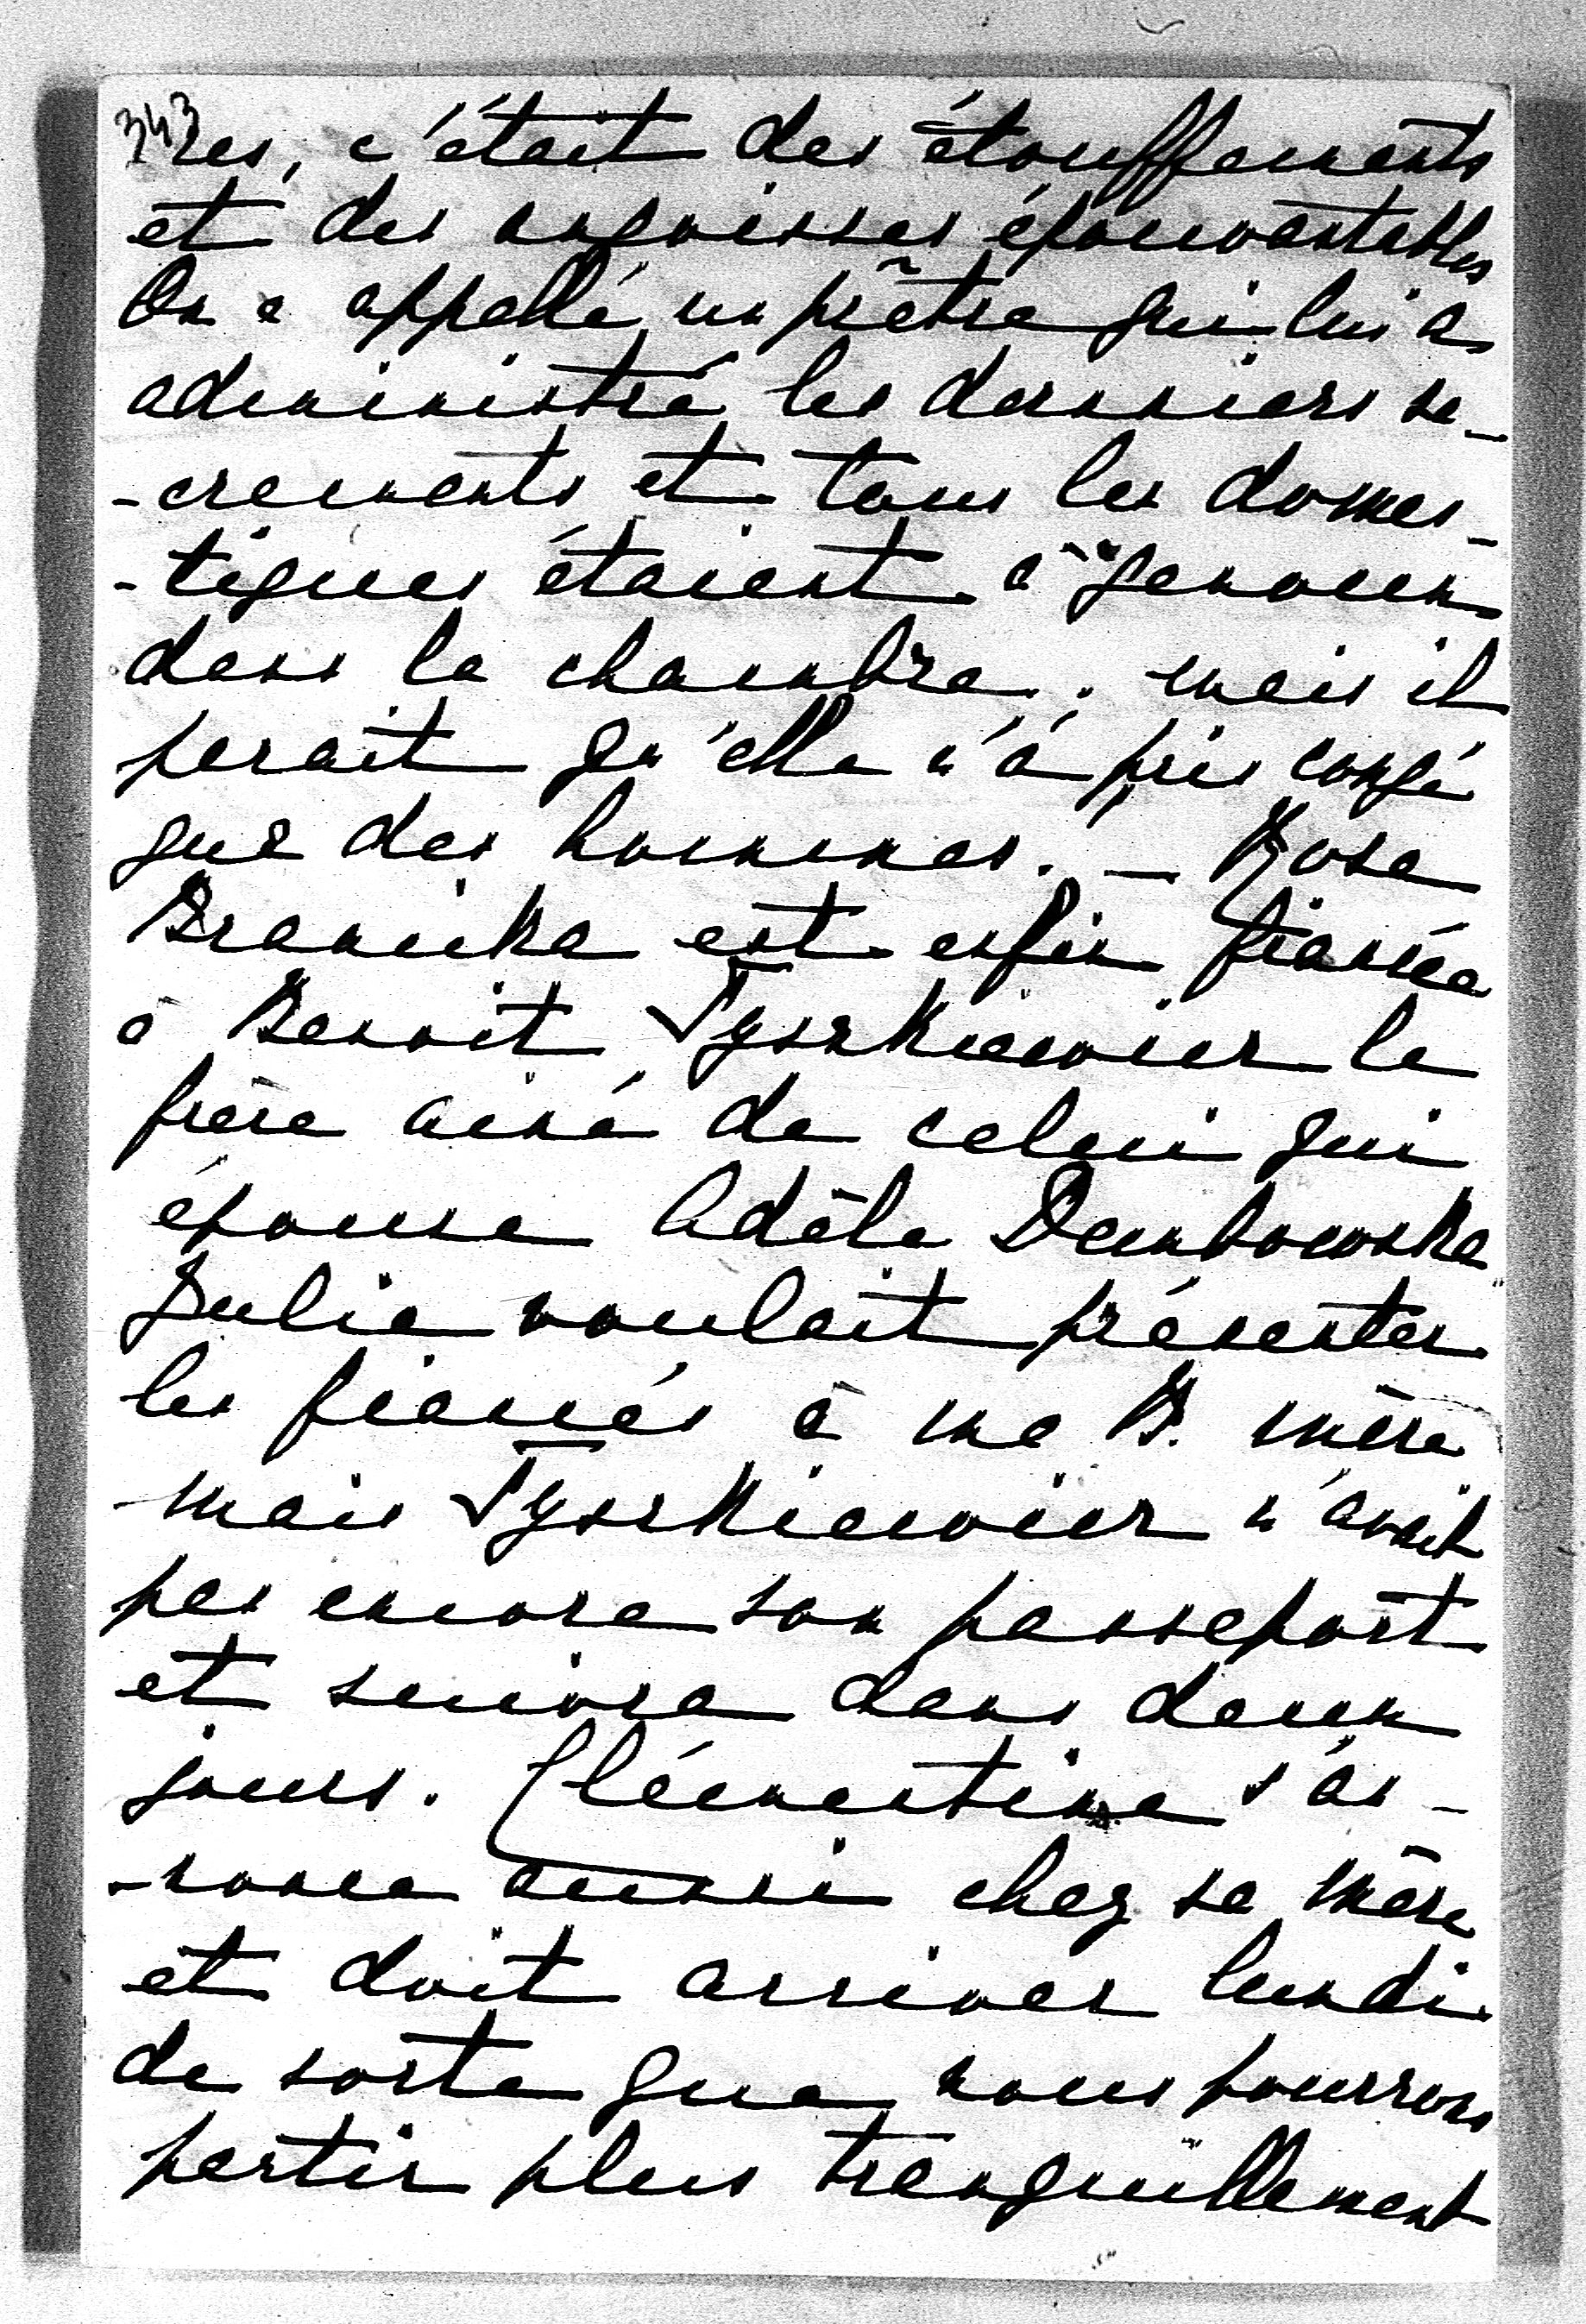 343
res, c'était des étouffements
et des angoisses épouvantables
On a appellé un prêtre qui lui a
administré les derniers sa-
-crements et tous les domes-
-tiques étaient à genoux
dans la chambre. mais il
parait qu'elle n'a pris congé
que des hommes. — Rose
Branicka est enfin fiancée
à Benoit Tyszkiewicz le
frère ainé de celui qui
épouse Adèle Dembowska
Julie voulait présenter
les fiancés à ma B. mère
mais Tyszkiewicz n'avait
pas encore son passeport
et suivra dans deux
jours. Clémentine s'an-
-nonce aussi chez sa mère
et doit arriver lundi
de sorte que nous pourrons
partir plus tranquillement